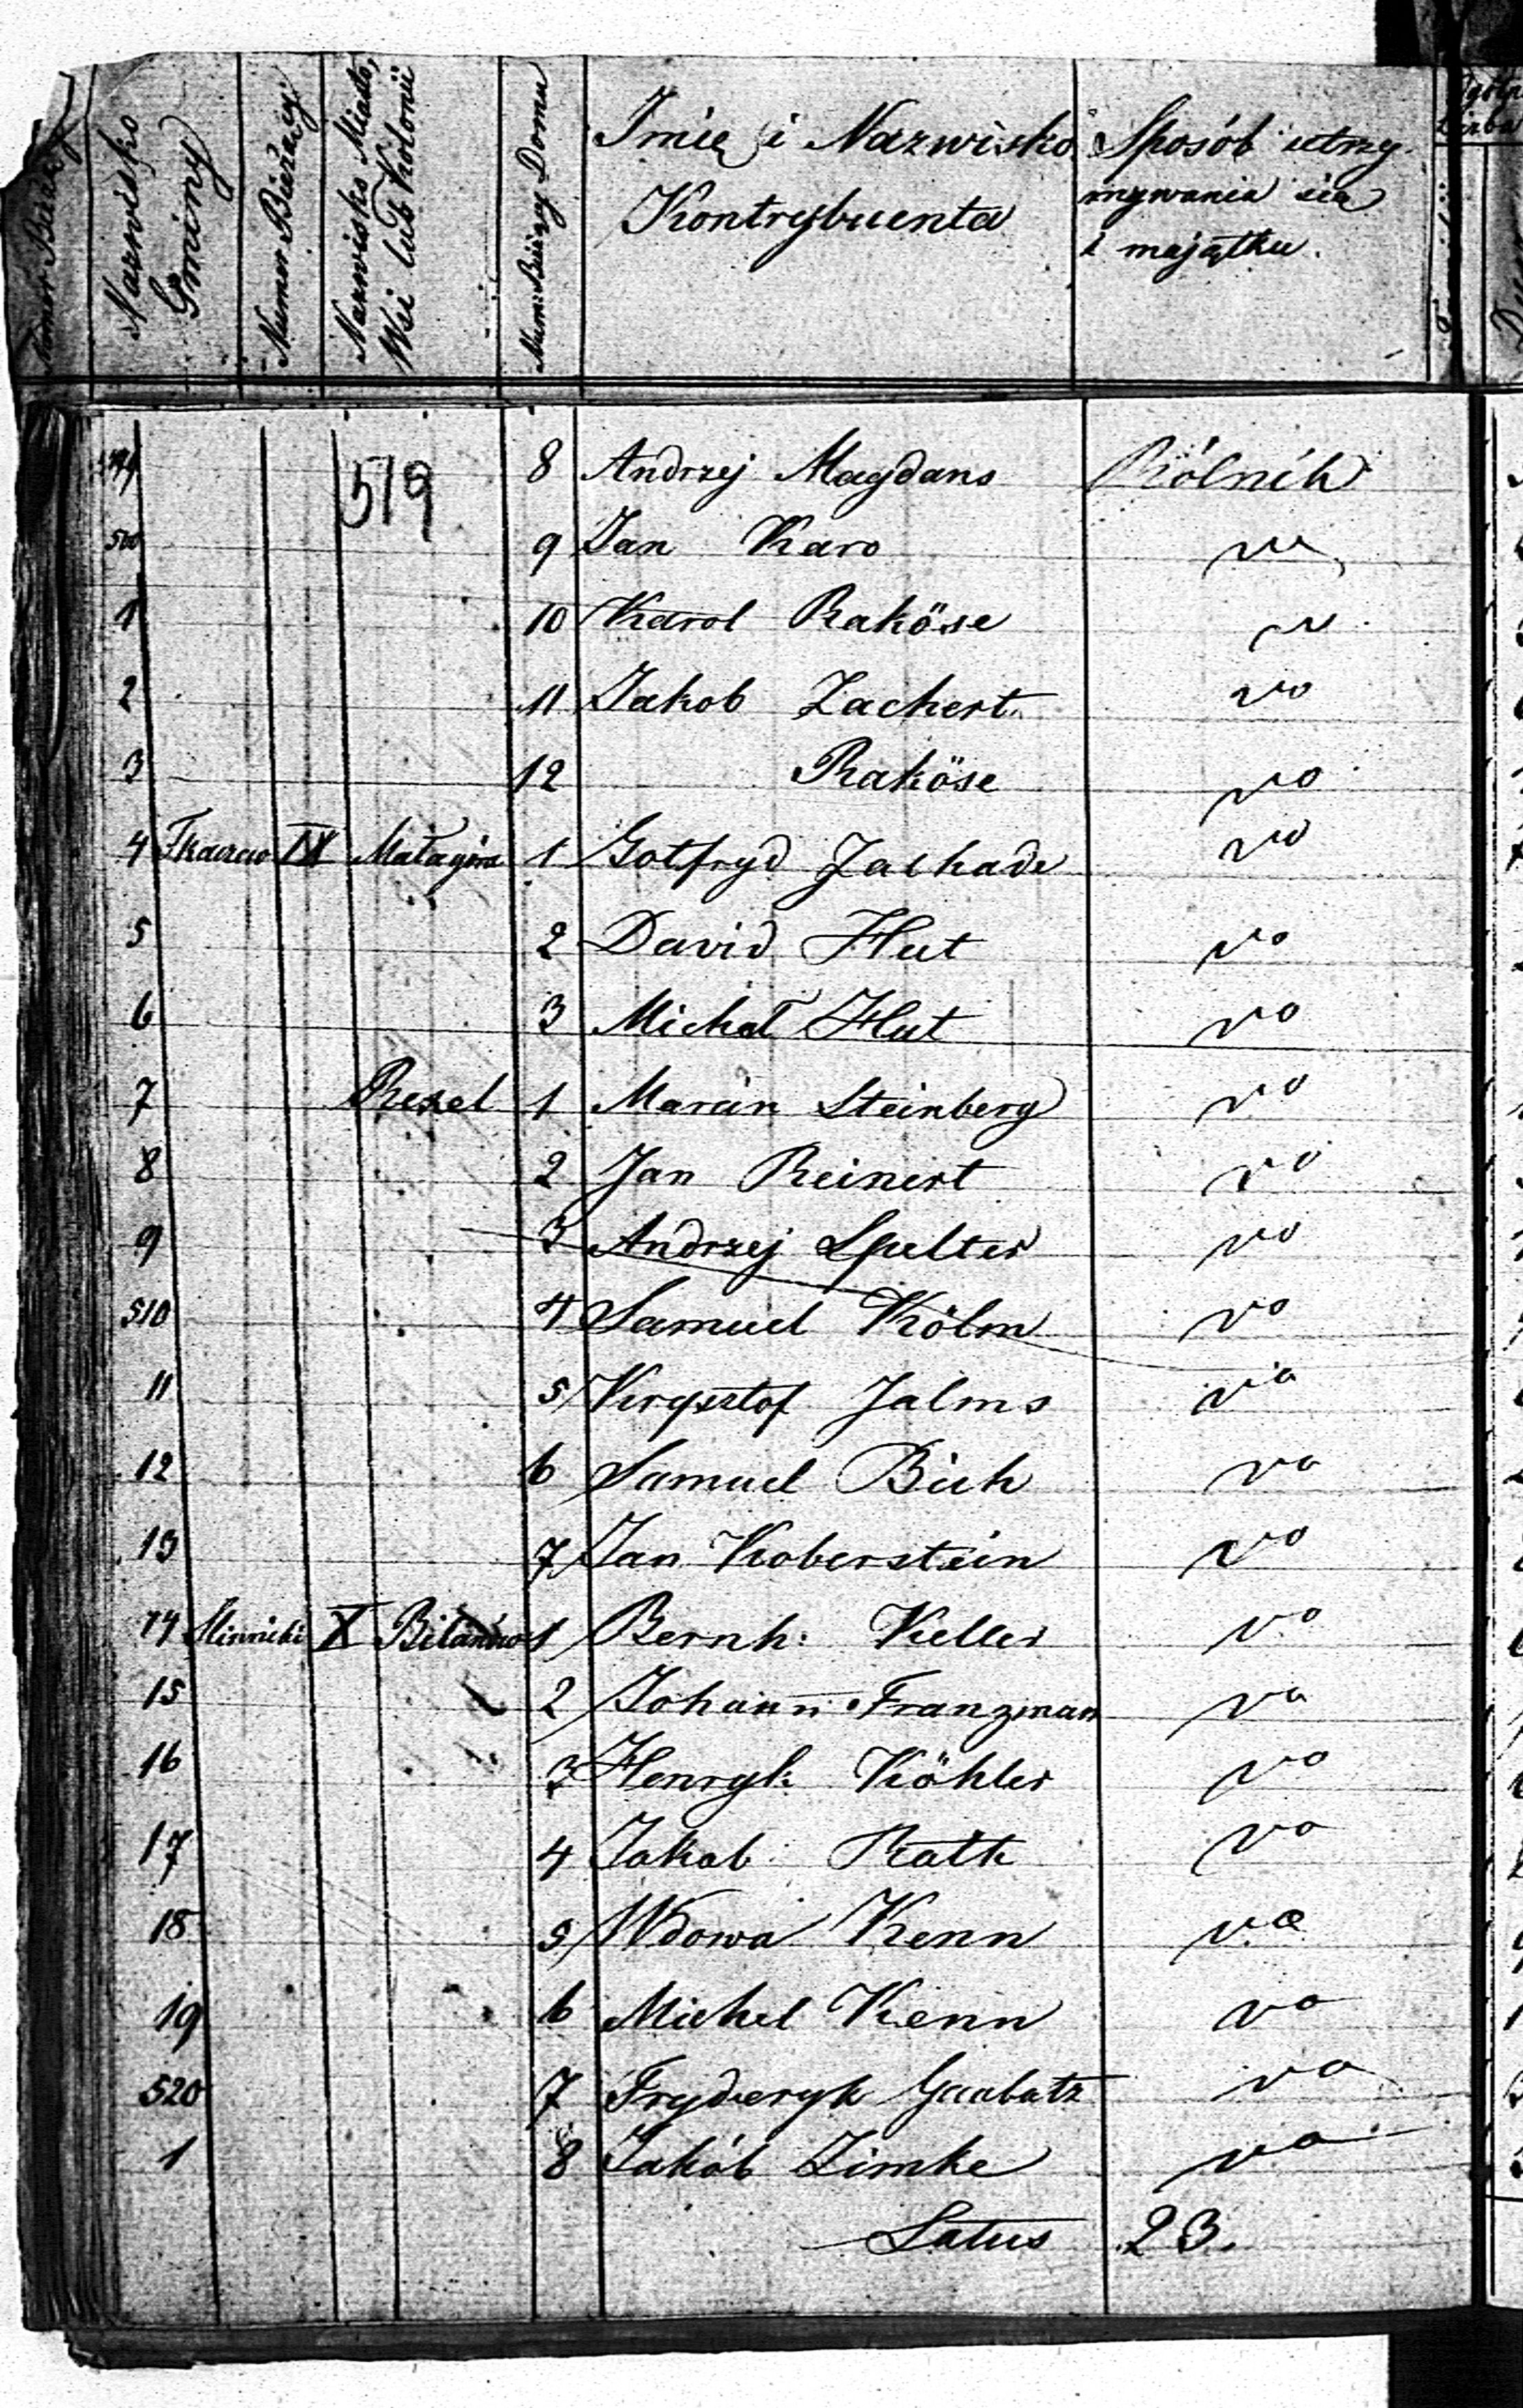 Numer Bieżący
Nazwisko Gminy
Numer Bieżący
Nazwisko Miasto, Wsi lub Kolonii
Num: Bieżący Domu
Imię i Nazwisko Kontrybuenta
Sposób utrzymywania się i majątku.
519
499 8 Andrzej Magdans Rólnik
500 9 Jan Karo vo
1 10 Karol Raköse vo
2 11 Jakob Zachert vo
3 12 Raköse vo
4 Tkaczew IX Małagóra 1 Gotfryd Jackade vo
5 2 David Hut vo
6 3 Michał Hut vo
7 Rexel 1 Marcin Steinberg vo
8 2 Jan Reinert vo
9 3 Andrzej Spelter vo
510 4 Samuel Kölm vo
11 5 Krysztof Jalms vo
12 6 Samuel Bich vo
13 7 Jan Koberstein vo
14 X 1 Bernh: Keller vo
15 2 Johann Franzman vo
16 3 Henryk Köhler vo
17 4 Jakob Rath vo
18 5 Wdowa Kenn vo
19 6 Michel Kenn vo
520 7 Fryderyk Gaabatz vo
1 8 Jakób Zimke vo
Latus 23.